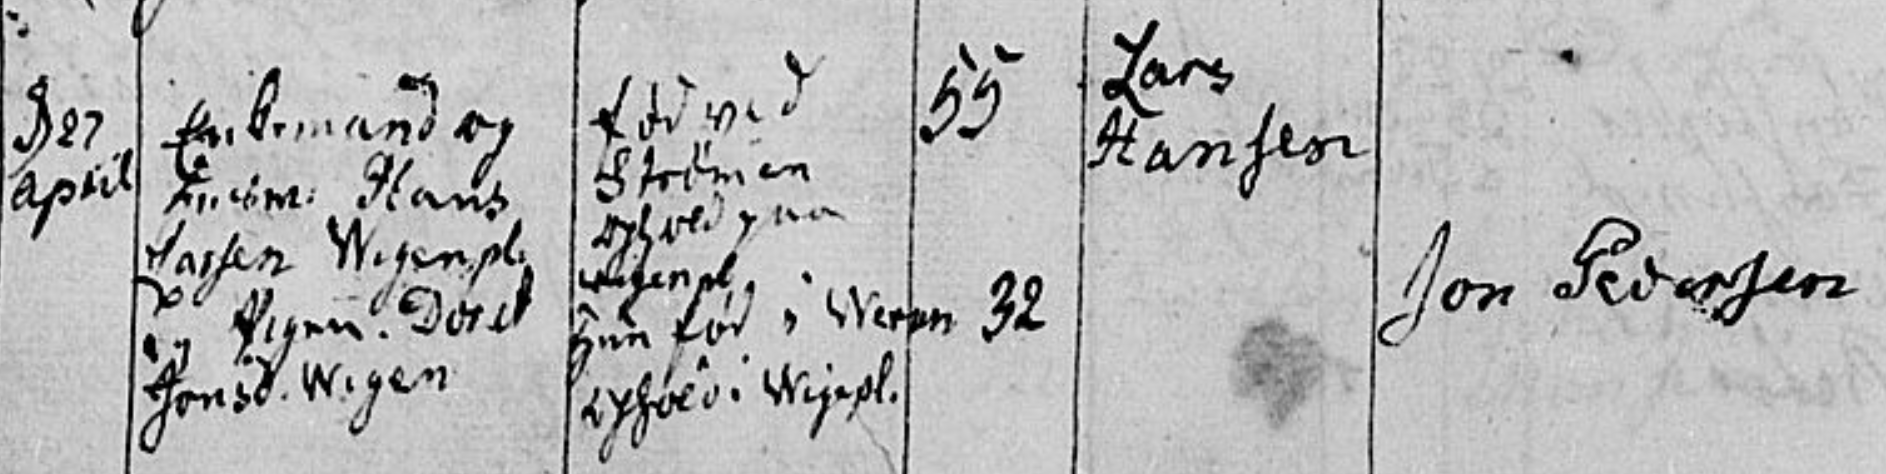 D 27
April
Enkemand og
Huusm: Hans
Larsen Wigenpl.
og Pigen. Dort
Jonsd. Wigen
fød ved
Strömen
ophold paa
Wigenpl.
hun fød i Weren
ophold i Wigepl.
55
32
Lars
Hansen
Jon Pedersen